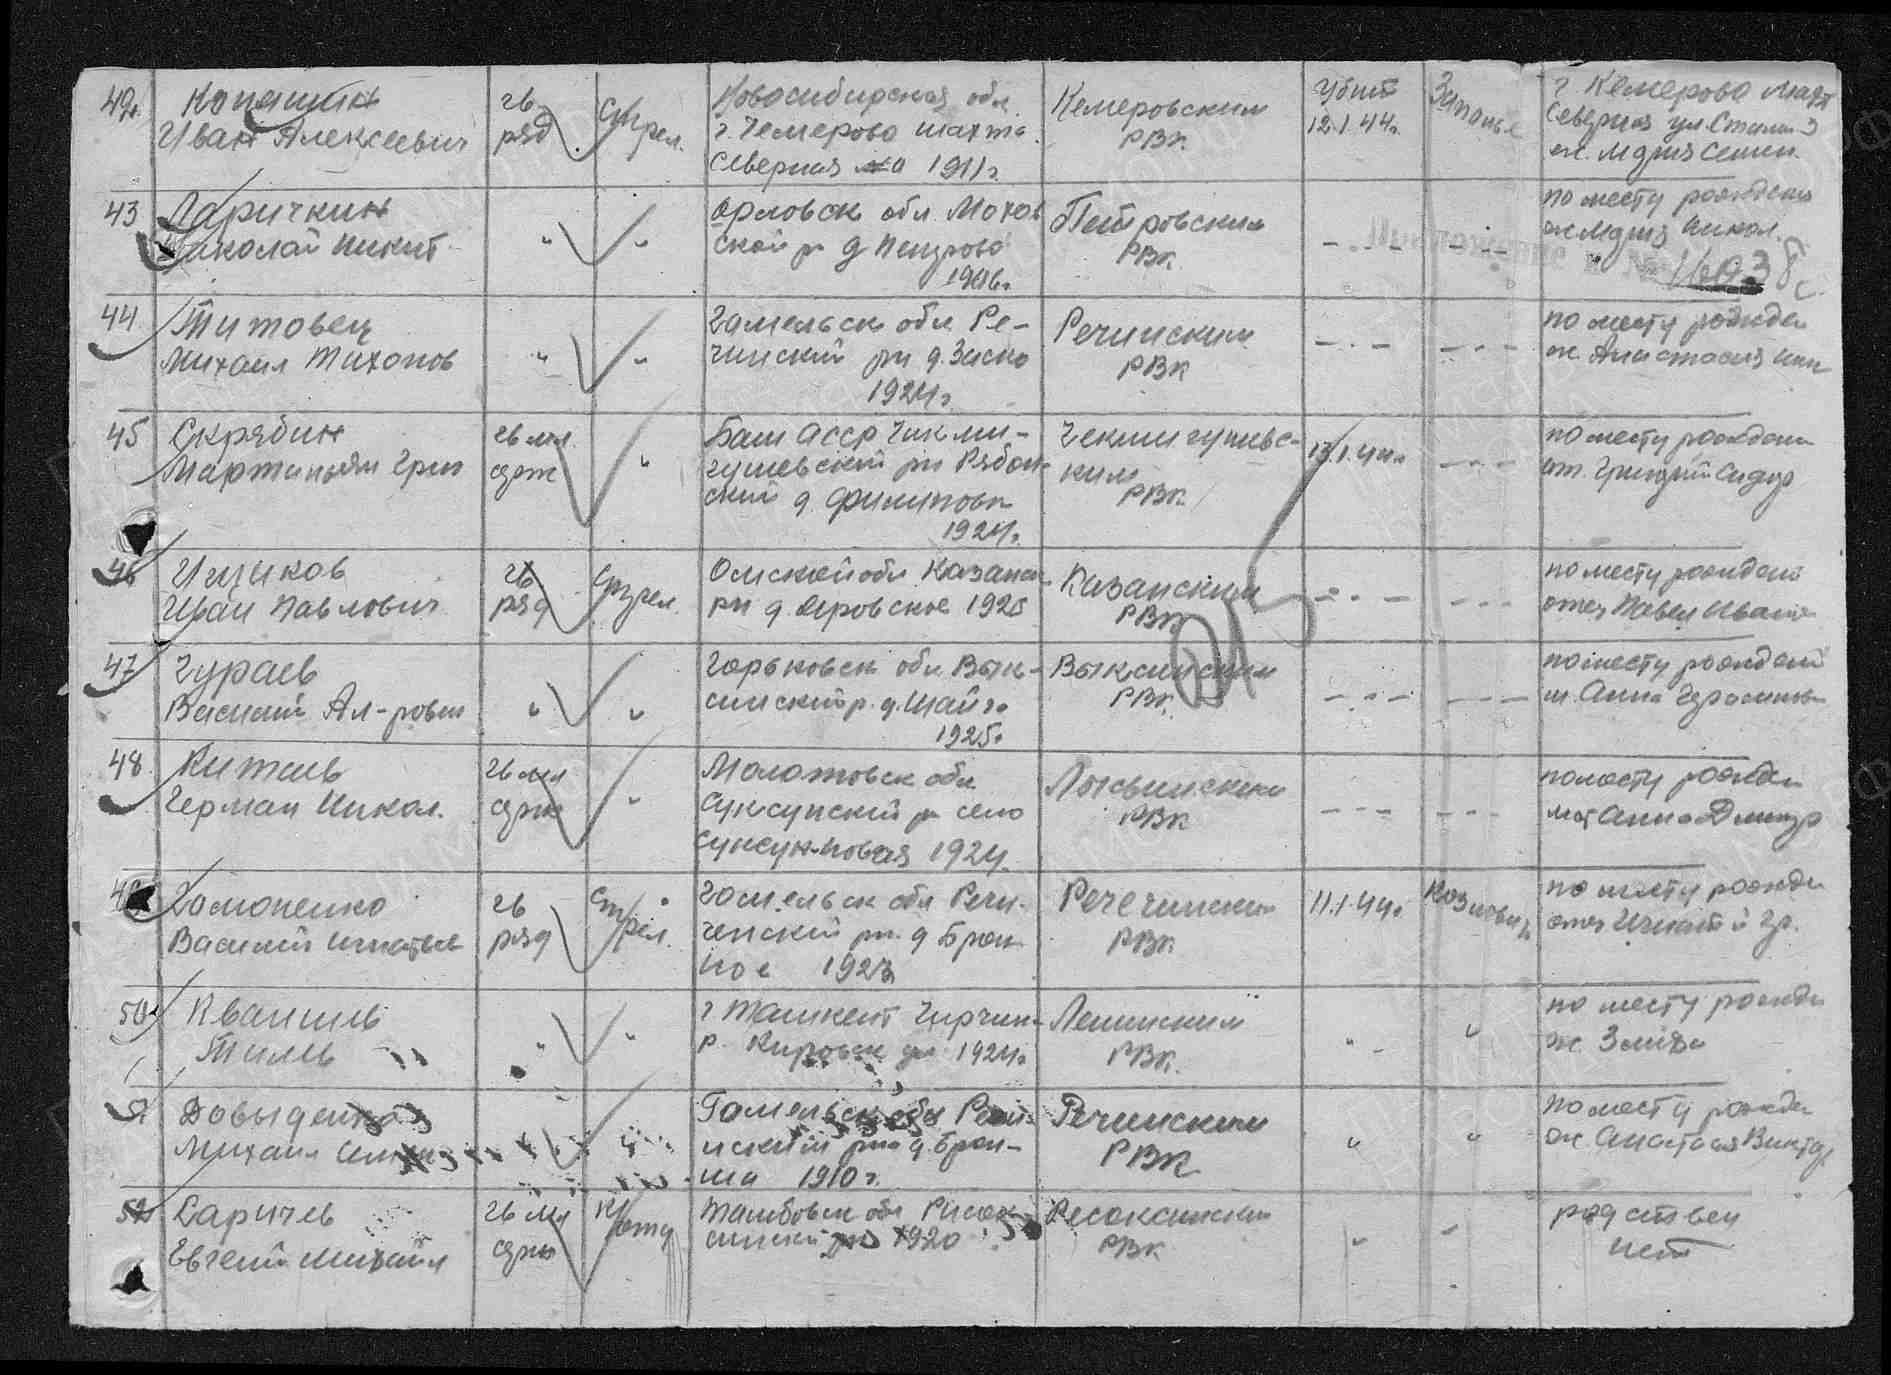 42.
Копашин
Иван Алексеевич
гв
ряд
Стрел.
Новосибирская обл
г. Кемерово шахта
Северная 1911г.
Кемеровским
РВК
Убит
12.1.44г.
г Кемерово шахт
Северная ул. Сталин 3
ж. Мария Семен.
43
Ларичкин
Николай Никит
"
"
Орловск обл. Мохов
ской рн д Петрово
1906г.
Петровским
РВК
— " —
— " —
по месту рожден
ж Мария Никол.
44
Титовец
Михаил Тихонов
"
"
Гомельск обл. Ре-
чицский рн д.
1924г.
Речицским
РВК
— " —
— " —
по месту рожден
ж. Анастасия
45
Скрябин
Мартиньян Григ
гв мл
серж
"
Баш АССР Чикми-
гушевский рн Рябош
ский д. Филиповк
1924г.
Чекмигушевс-
ким
РВК
13.1.44г.
— " —
по месту рожден
от. Григорий Сидор
46
Иван Павлович
гв
ряд
Стрел.
Омской обл Казанск
рн д. 1925
Казанским
РВК
— " —
— " —
по месту рожден
отец Павел Иванов
47
Гураев
Василий Ал-рович
"
"
Горьковск обл Вык-
синский р. д. Шайга
1925г
Выксинским
РВК
— " —
— " —
по месту рожден
м. Анна Герасимов
48
Китаев
Герман Никол.
гв мл
серж
"
Молотовск обл
Суксунский рн село
1924.
Лысьвинским
РВК
— " —
— " —
по месту рожден
мат Анна Дмитр
49
Хомоненко
Василий Игнатьев
гв
ряд
Стрел.
Гомельск обл Речи-
ченский рн. д Брон
ное 1923
Речечинским
РВК
11.1.44г.
Козловичи
по месту рожден
отец Игнатий Гр.
50
"
"
г Ташкент Чирчик-
р. 1924г.
Ленинским
РВК.
" -
"
по месту рожден
ж
51
Довыденко
Михаил
"
Гомельск обл Речи-
цский рн д Брон-
ша 1910г.
Речицским
РВК
"
"
по месту рожден
ж. Анастасия Виктор
52
Ларичев
Евгений Михайл
гв мл
серж
Тамбовск обл Рисок
синский рн 1920
Ресокскинским
РВК
"
"
родствен
нет